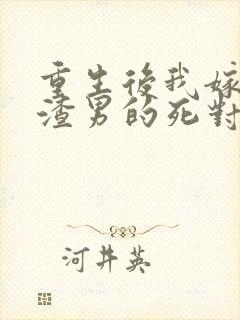 重生後我嫁
渣男的死對
河井英